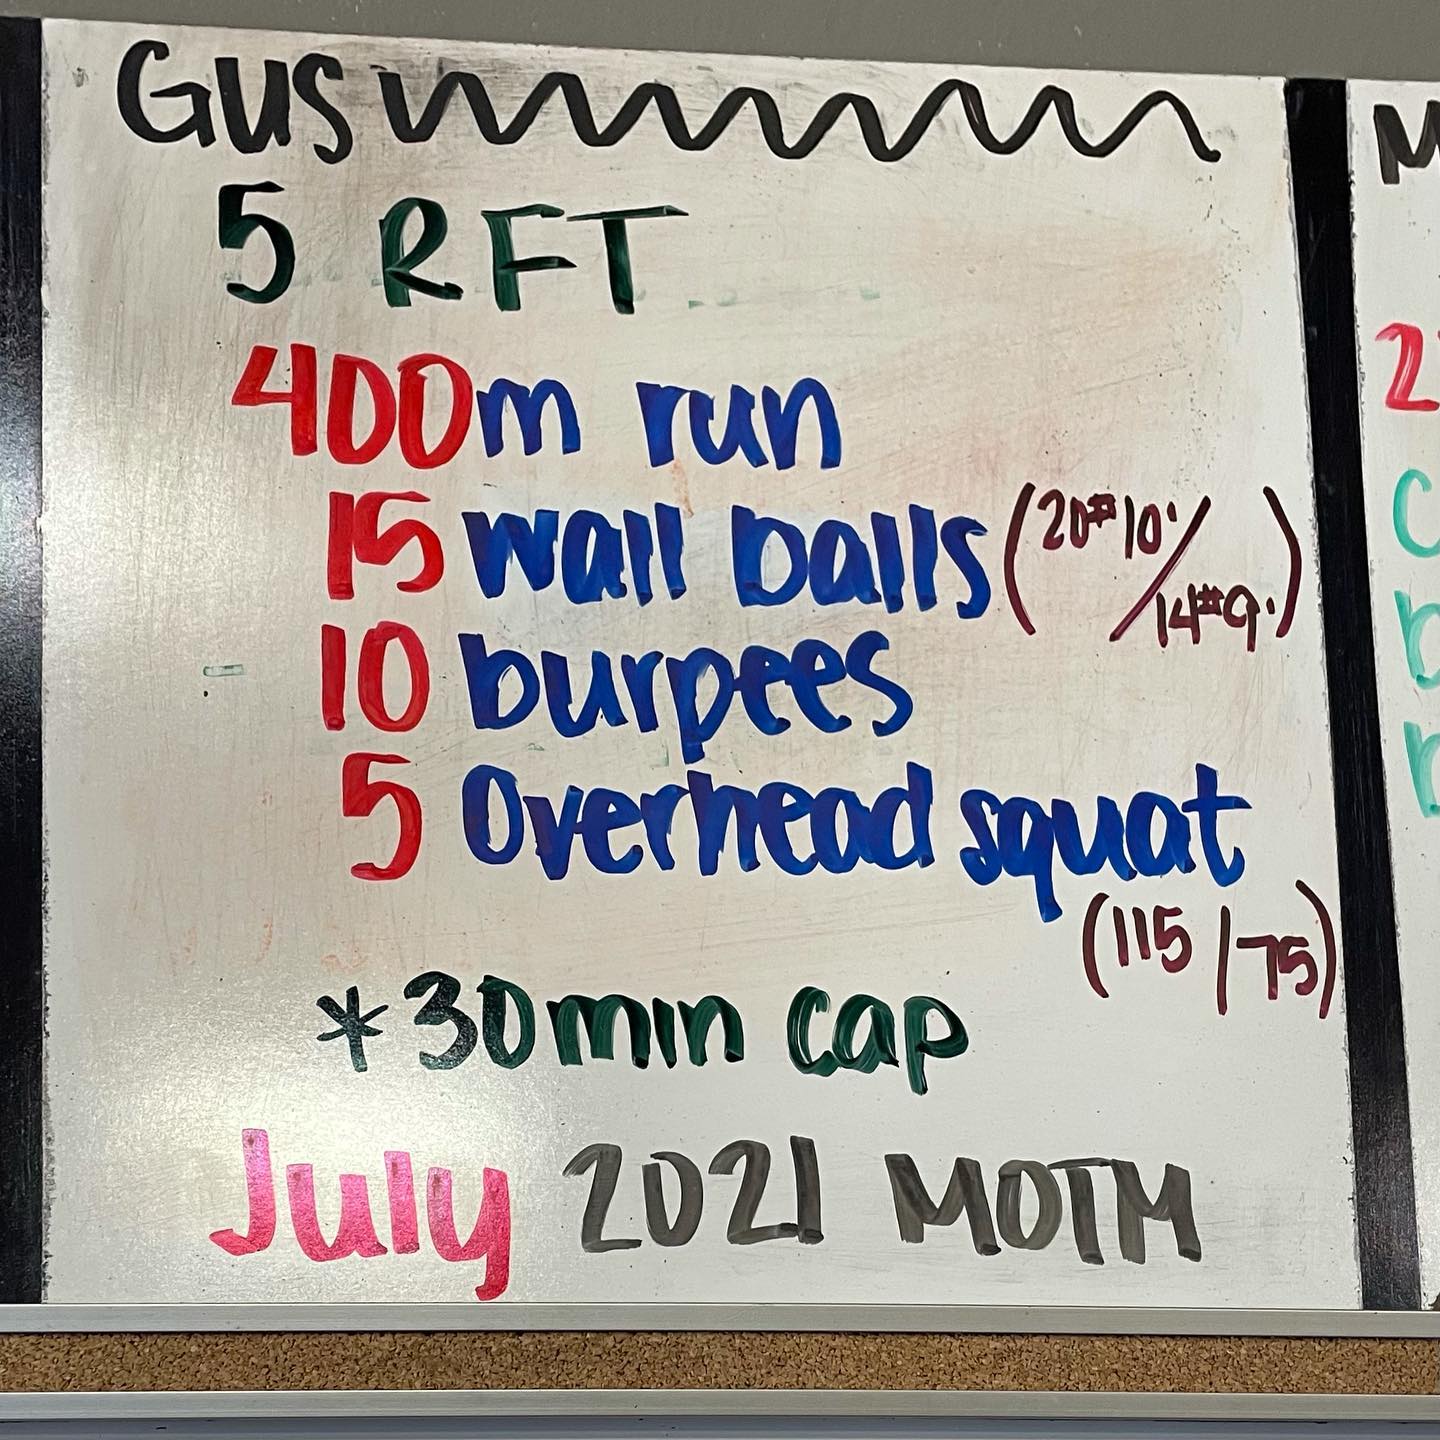 Gus
5 RFT
400m run
15 wall balls (20# 10'/14# 9')
10 burpees
5 Overhead squat
(115/75)
*30min cap
July 2021 MOTM